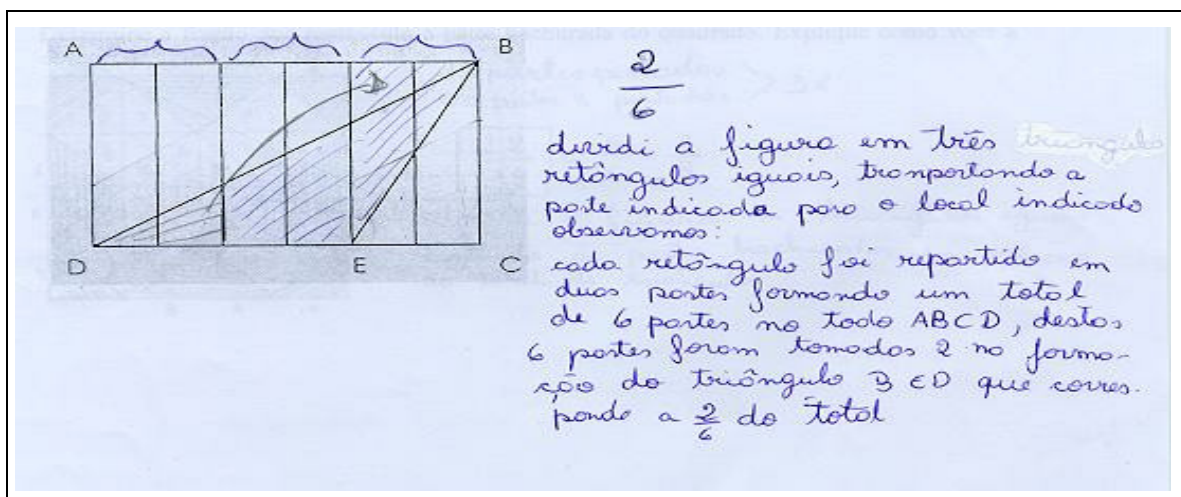 A
B
D
E
C
2
6
dividi a figura em três triângulo
retângulos iguais, tranportando a
parte indicada para o local indicado
observamos:
cada retângulo foi repartido em
duas partes formando um total
de 6 partes no todo ABCD, destas
6 partes foram tomadas 2 na forma-
ção do triângulo BED que corres-
ponde a 2/6 do total